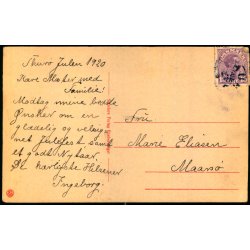 Thurø Julen 1920
Kære Moster med
Familie!
Modtag mine bedste
Ønsker om en
glædelig og velsig-
net Julefest samt
et godt Nytaar.
De kærligste Hilsener
Ingeborg.
Frü
Marie Eliasen
Maarsø